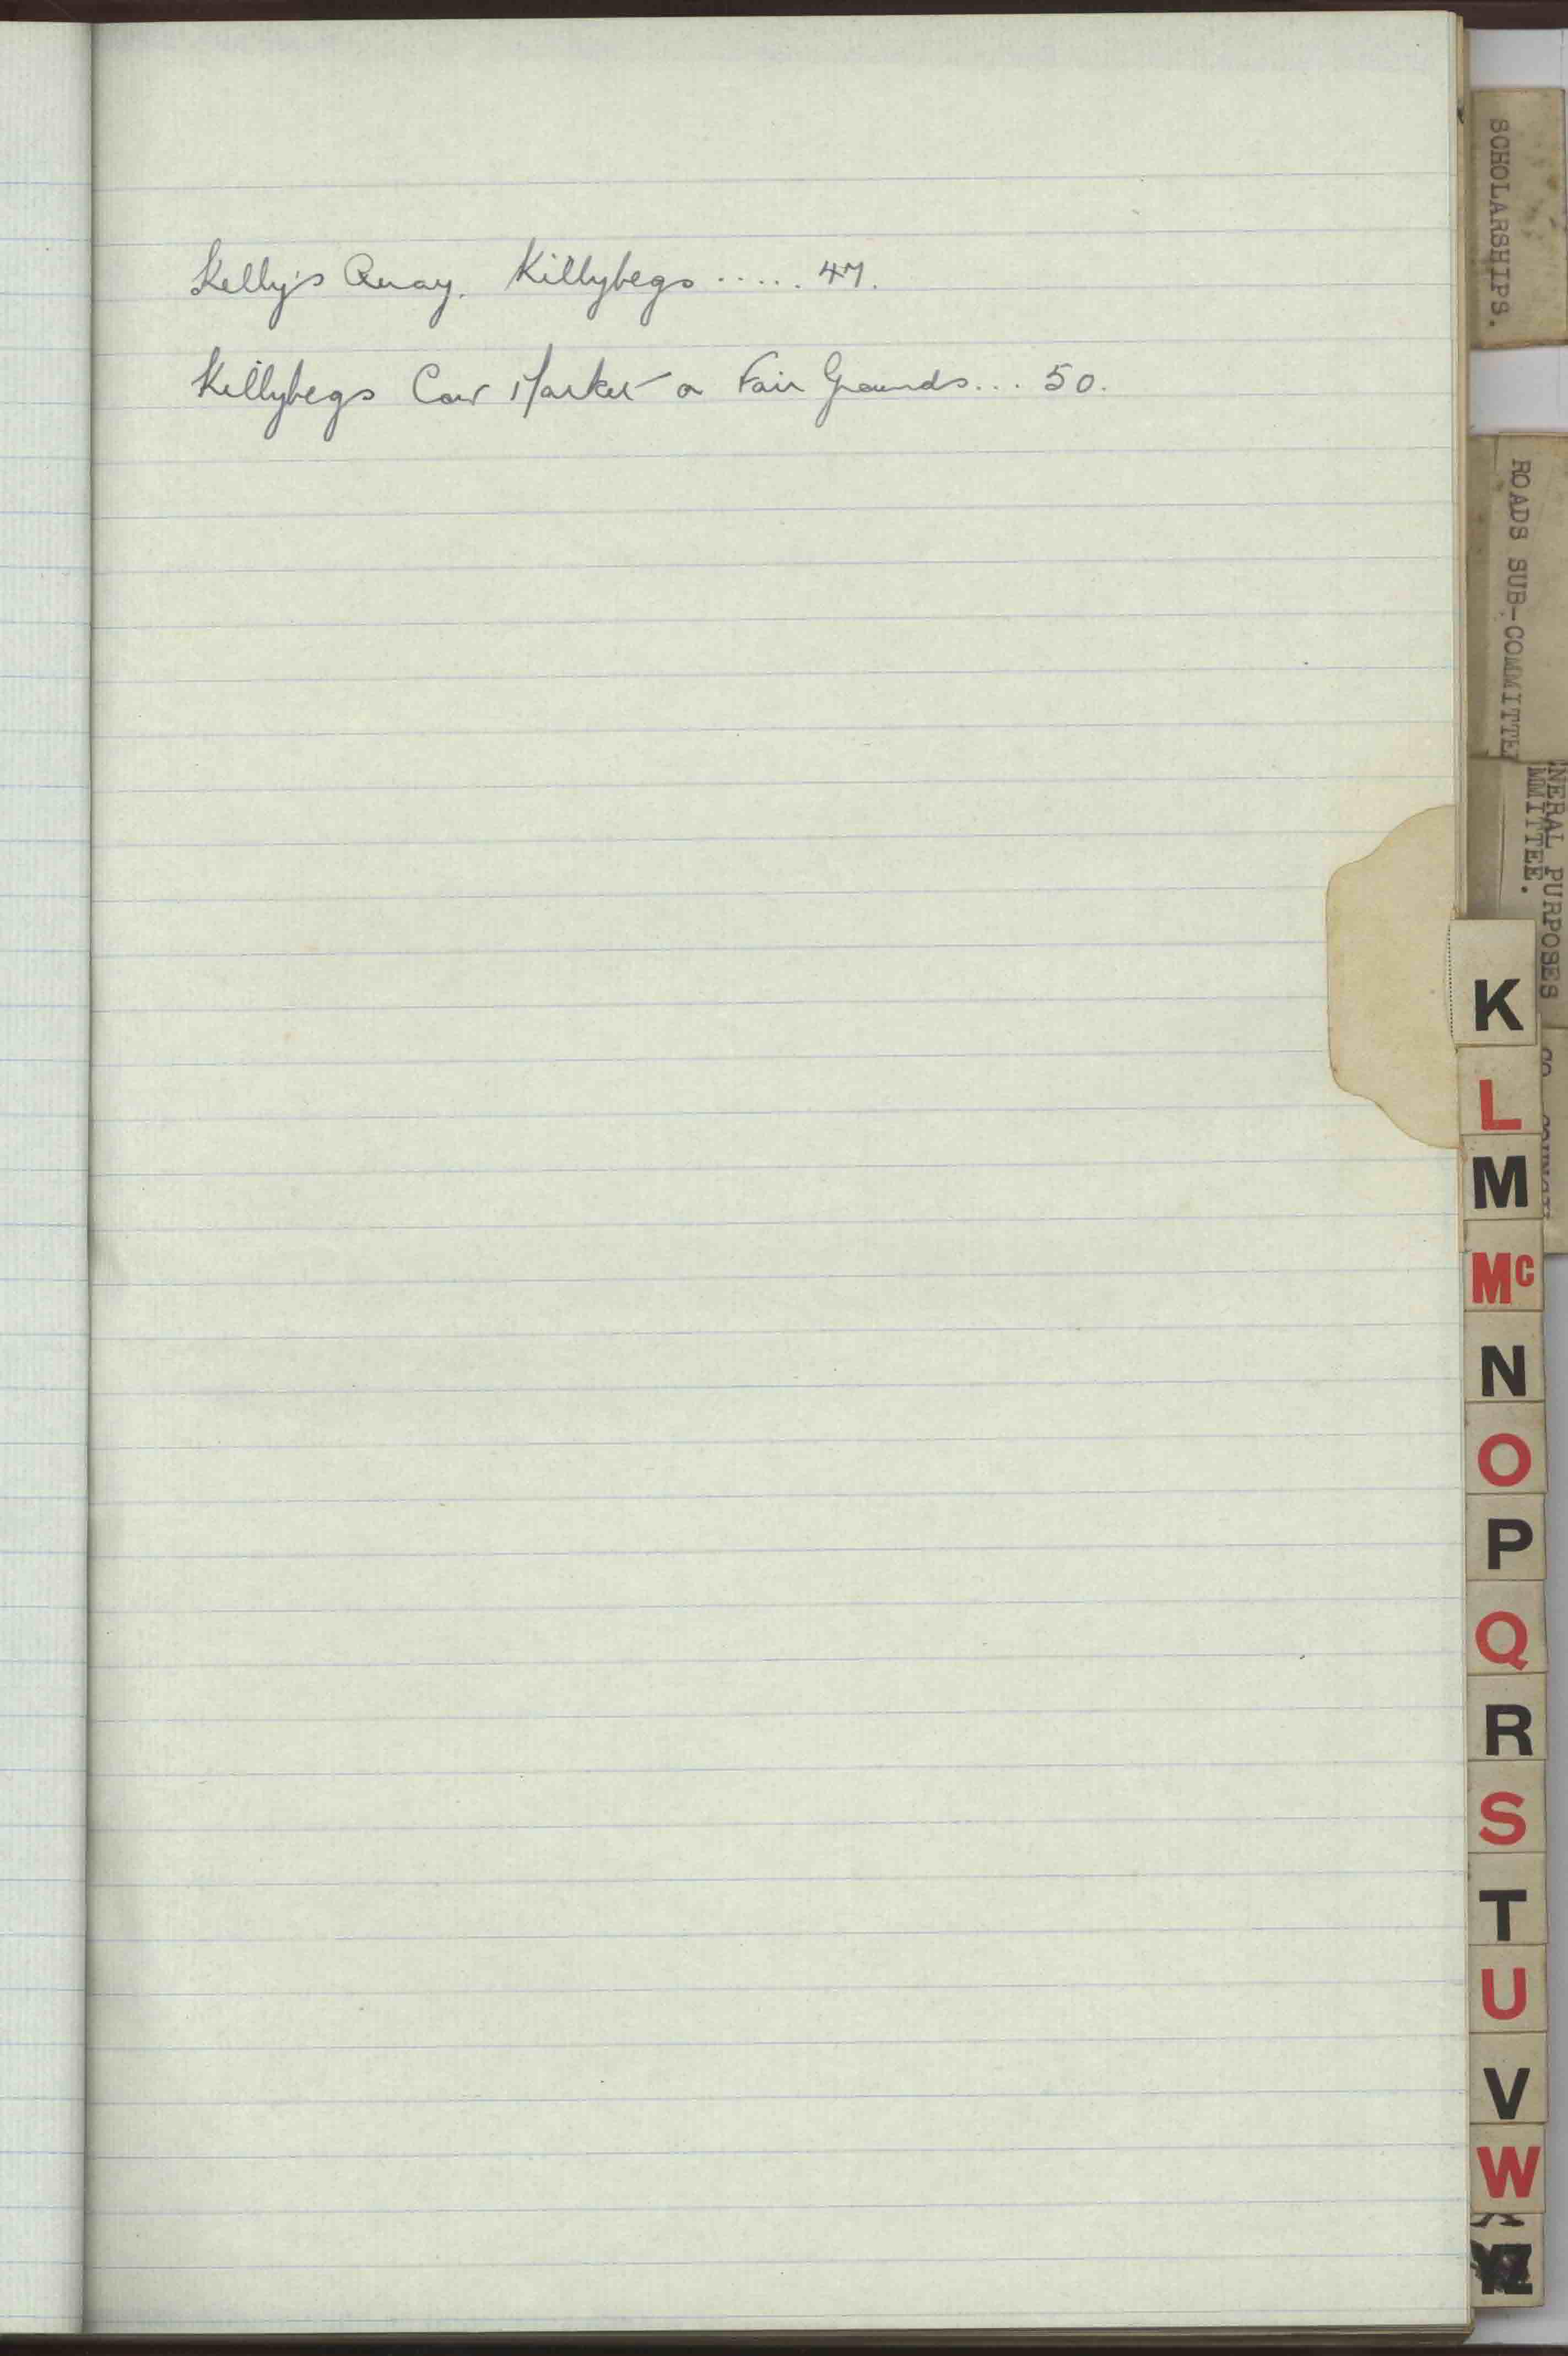 Kelly's Quay. Killybegs ..... 47.
Killybegs Cow Market or Fair Grounds... 50.
SCHOLARSHIPS.
ROADS SUB-COMMITTE
NERAL PURPOSES
MMITTEE.
K
L
M
Mc
N
O
P
Q
R
S
T
U
V
W
YZ